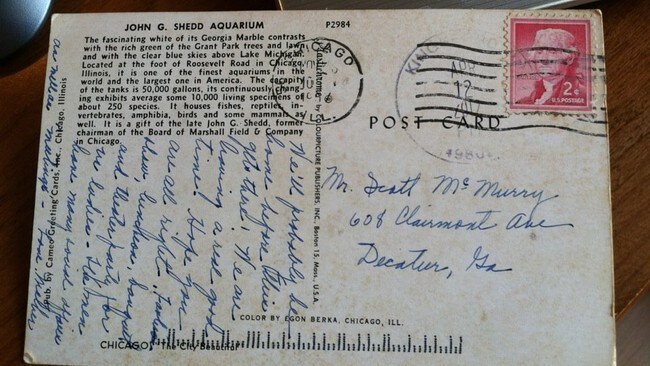 JOHN G. SHEDD AQUARIUM
P2984
The fascinating white of its Georgia Marble contrasts
with the rich green of the Grant Park trees and lawn
and with the clear blue skies above Lake Michigan.
Located at the foot of Roosevelt Road in Chicago,
Illinois, it is one of the finest aquariums in the
world and the largest one in America. The capacity
of the tanks is 50,000 gallons, its continuously chang-
ing exhibits average some 10,000 living specimens of
about 250 species. It houses fishes, reptiles, in-
vertebrates, amphibia, birds and some mammals as
well. It is a gift of the late John G. Shedd, former
chairman of the Board of Marshall Field & Company
in Chicago.
We'll probably be
home before this
gets there! We are
having a real good
time. Hope you
are all right.
show, luncheon
and theater party for
the ladies - The men
have many social affairs
meetings - Love, Mother
Pub. by Cameo Greeting Cards, Inc., Chicago, Illinois
Plastichrome by COLOURPICTURE PUBLISHERS, INC., Boston 15, Mass., U.S.A.
CHICAGO
ILL.
12
2¢
U.S. POSTAGE
POST CARD
Mr. Scott McMurry
608 Clairmont Ave
Decatur, Ga
COLOR BY EGON BERKA, CHICAGO, ILL.
CHICAGO "The City Beautiful"